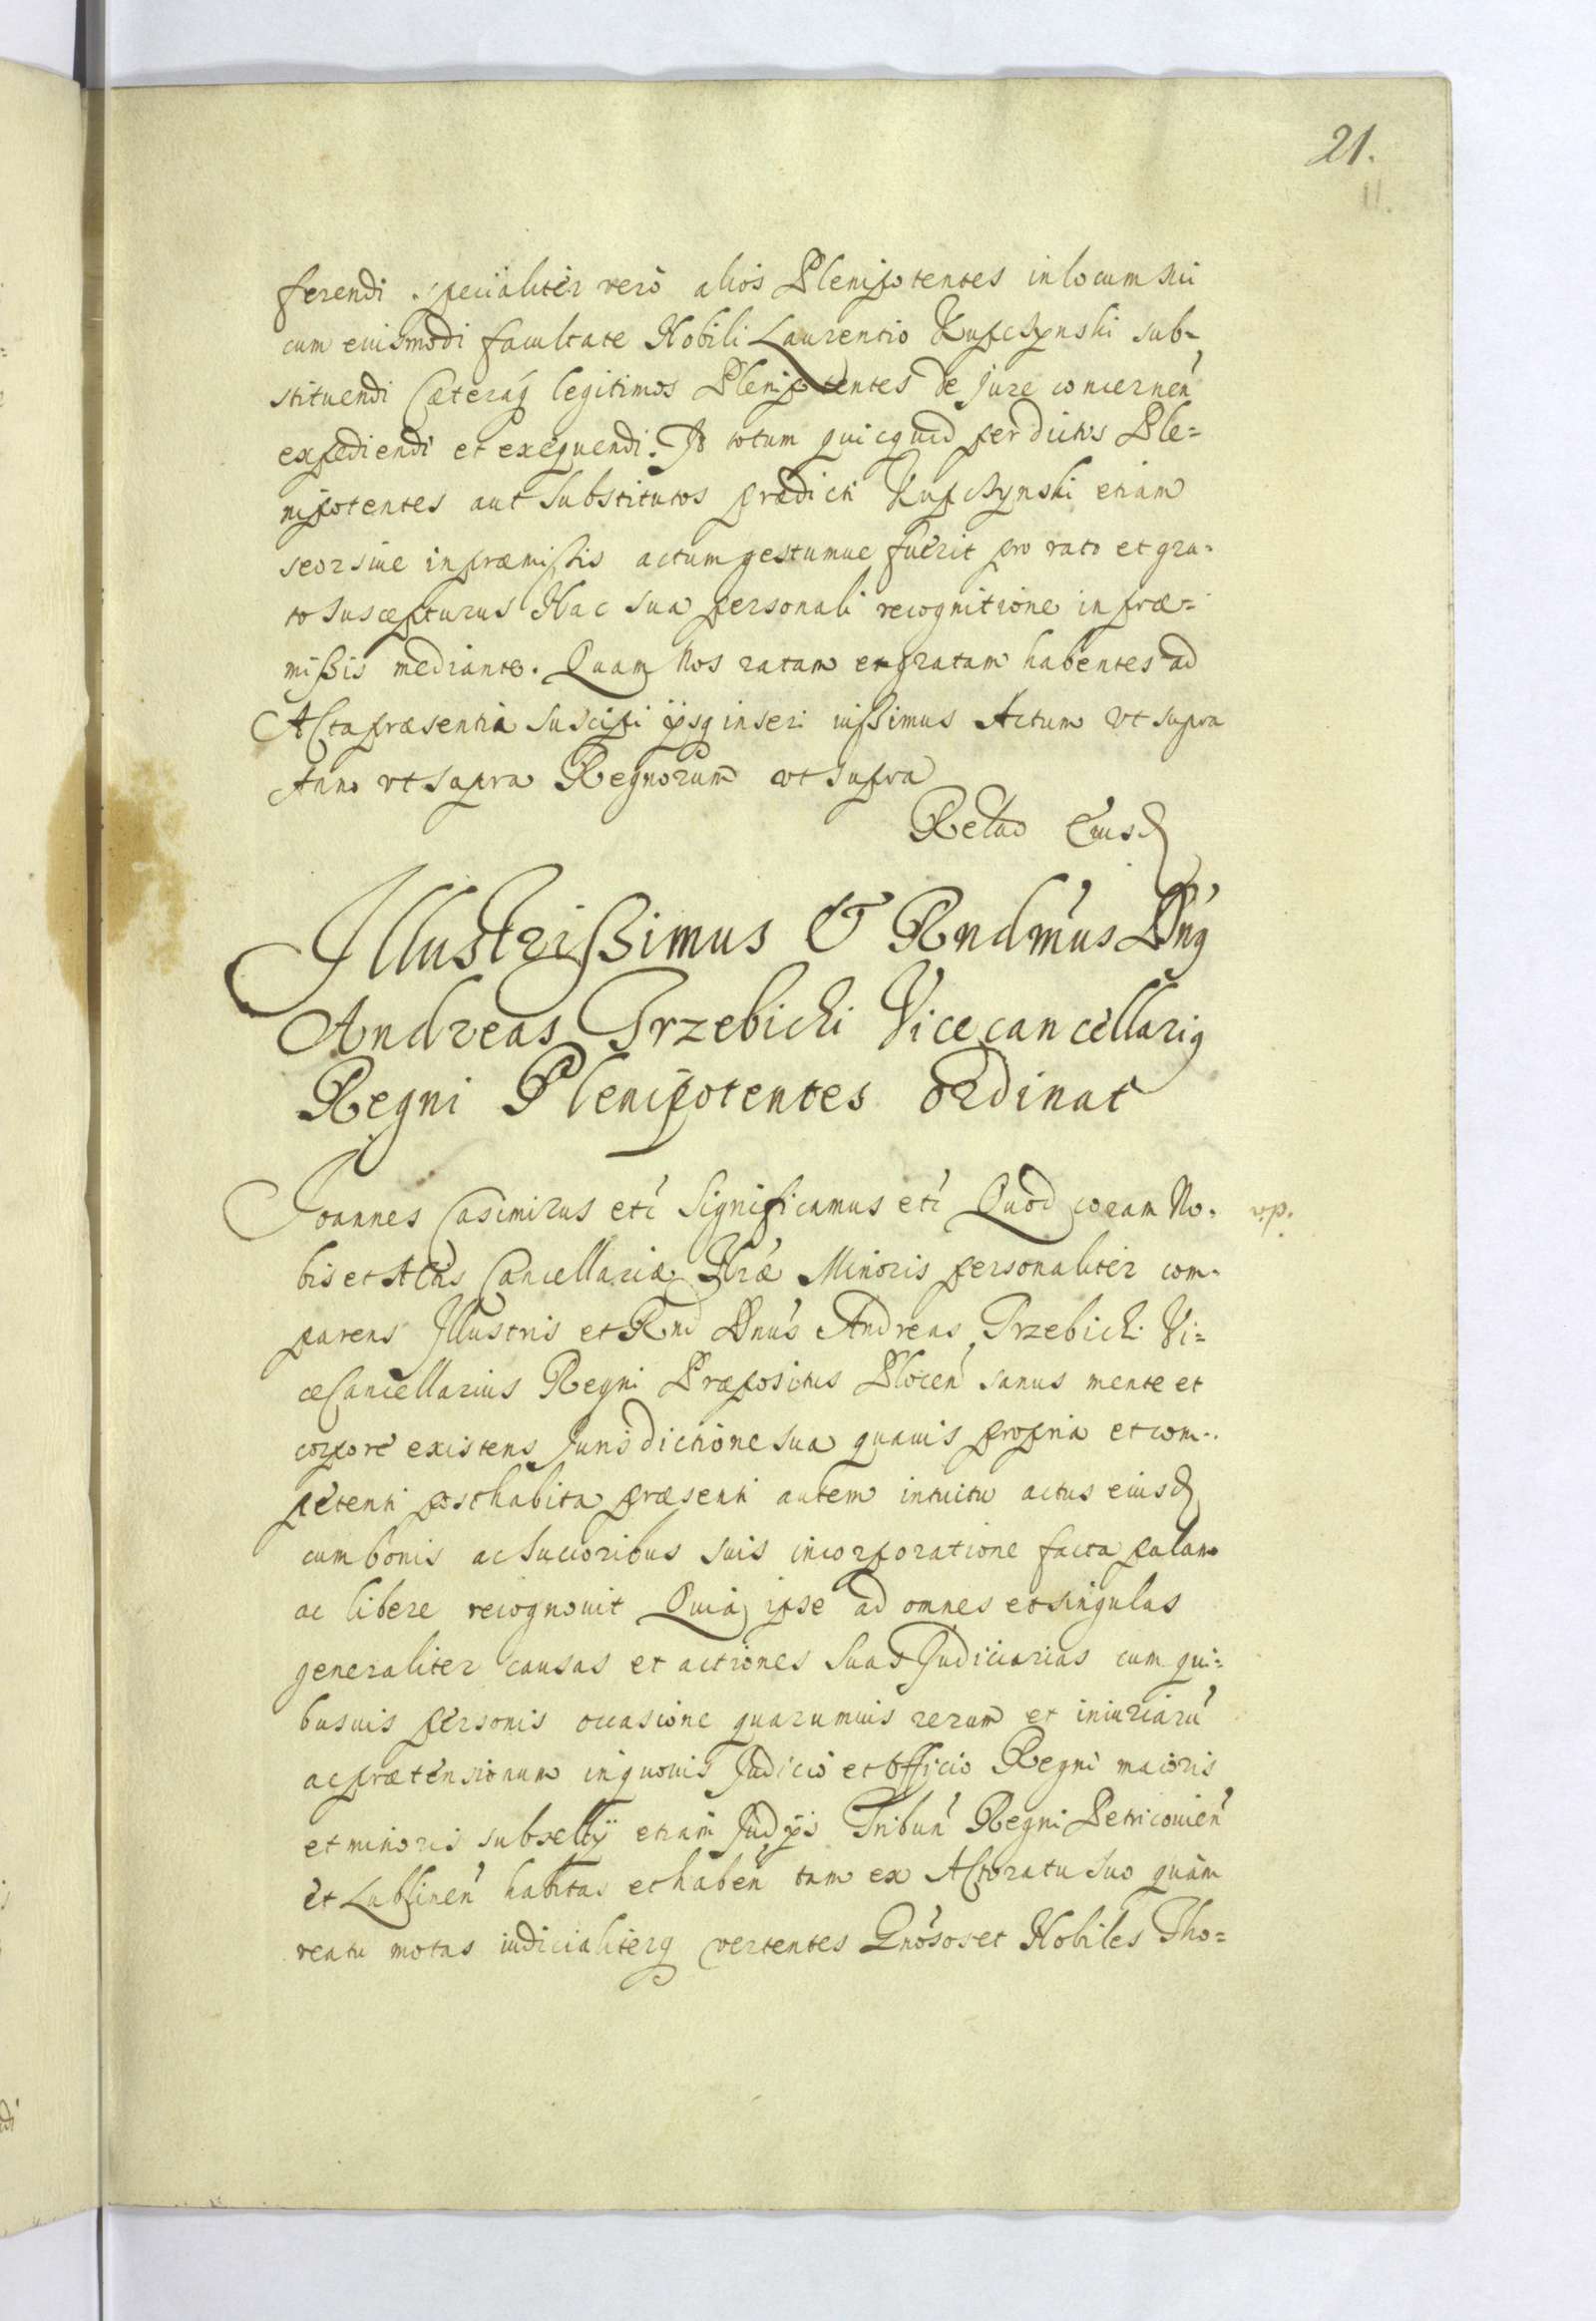 21.
11.
ferendi specialiter vero alios Plenipotentes in locum sui
cum euismodi facultate Nobili Laurentio Kupczynski sub-
stituendi Cæteraq legitimos Plenipotentes de Jure concernen
expediendi et exequendi. Id totum quicquid per dictos Ple=
nipotentes aut substitutos prædicti Kupczynski etiam
seorsiue in præmissis actum gestumue fuerit pro rato et gra-
to suscepturus Hac sua personali recognitione in præ=
mißis mediante. Quam Nos ratam et gratam habentes ad
Acta præsentia suscipi ijsq inseri iußimus Actum vt supra
Anno vt supra Regnorum vt supra
Relao Eiusd
Illustrißimus & Rndmus Dnq
Andreas Trzebicki Vicecancellariq
Regni Plenipotentes ordinat
Joannes Casimirus etc Significamus etc Quod coram No- v.p.
bis et Actis Cancellariæ Nræ Minoris personaliter com-
parens Illustris et Rnd Dnus Andreas Trzebicki Vi=
ceCancellarius Regni Præpositus Plocen sanus mente et
corpore existens Jurisdictione sua quauis propria et com-
petenti posthabita præsenti autem intuitu actus eiusd
cum bonis ac succoribus suis incorporatione facta palam
ac libere recognouit Quia ipse ad omnes et singulas
generaliter causas et actiones suas Judiciarias cum qui=
busuis personis occasione quarumuis rerum et iniuriaru
ac prætensionum in quouis Judicio et Officio Regni maioris
et minoris subsellij etiam Judijs Tribun Regni Petricouien
et Lublinen habitas et haben tam ex Actoratu suo quam
reatu motas iudicialiterq vertentes Gnosos et Nobiles Tho=